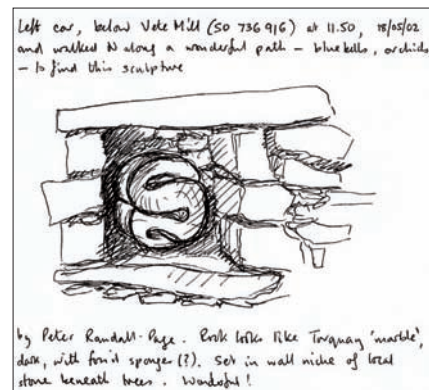 Left car, below Vete Mill (SO 736 916) at 11.50, 18/05/02
and walked N along a wonderful path – bluebells, orchids
– to find this sculpture
by Peter Randall-Page. Rock looks like Torquay 'marble',
dark, with fossil sponges (?). Set in wall niche of local
stone beneath trees. Wonderful!